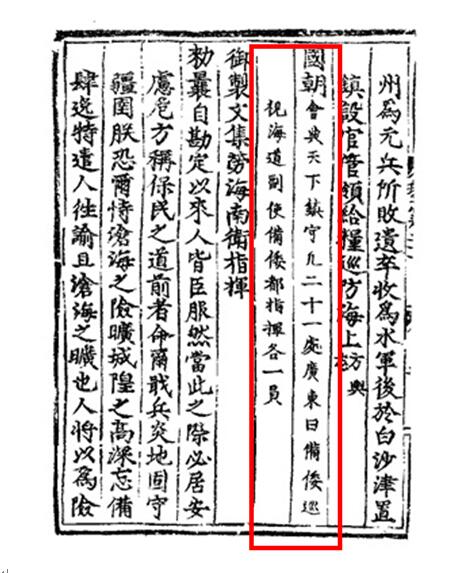 州為元兵所敗遺卒收為水軍後於白沙津置
鎮設官管領給糧巡防海上方輿志
國朝會典天下鎮守凡二十一處廣東曰備倭巡
視海道副使備倭都指揮各一員
御製文集勞海南衛指揮
勑曩自勘定以來人皆臣服然當此之際必居安
慮危方稱保民之道前者命爾戢兵炎地固守
疆圉朕恐爾恃滄海之險曠城隍之高深忘備
肆逸特遣人往諭且滄海之曠也人將以為險